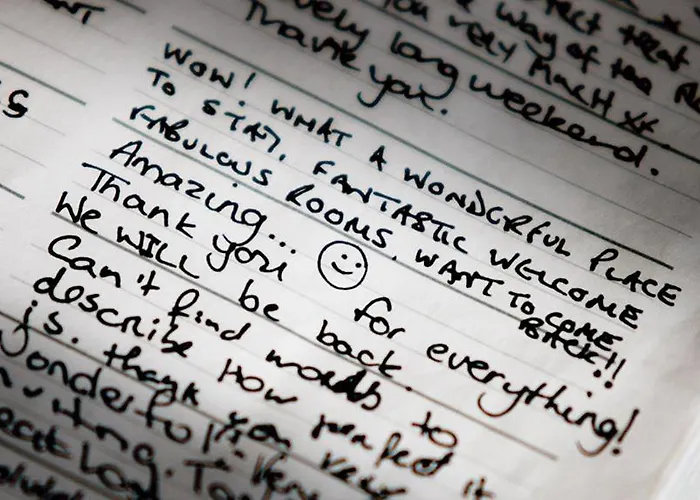 treat
way of the
vely long weekend.
you very much xx
Thank you.
WOW! WHAT A WONDERFUL PLACE
TO STAY. FANTASTIC WELCOME
FABULOUS ROOMS. WANT TO COME
BACK!!
Amazing...
Thank you ☺ for everything!
We WILL be back.
Can't find words to
describe how perfect it
is. thank you very
wonderful